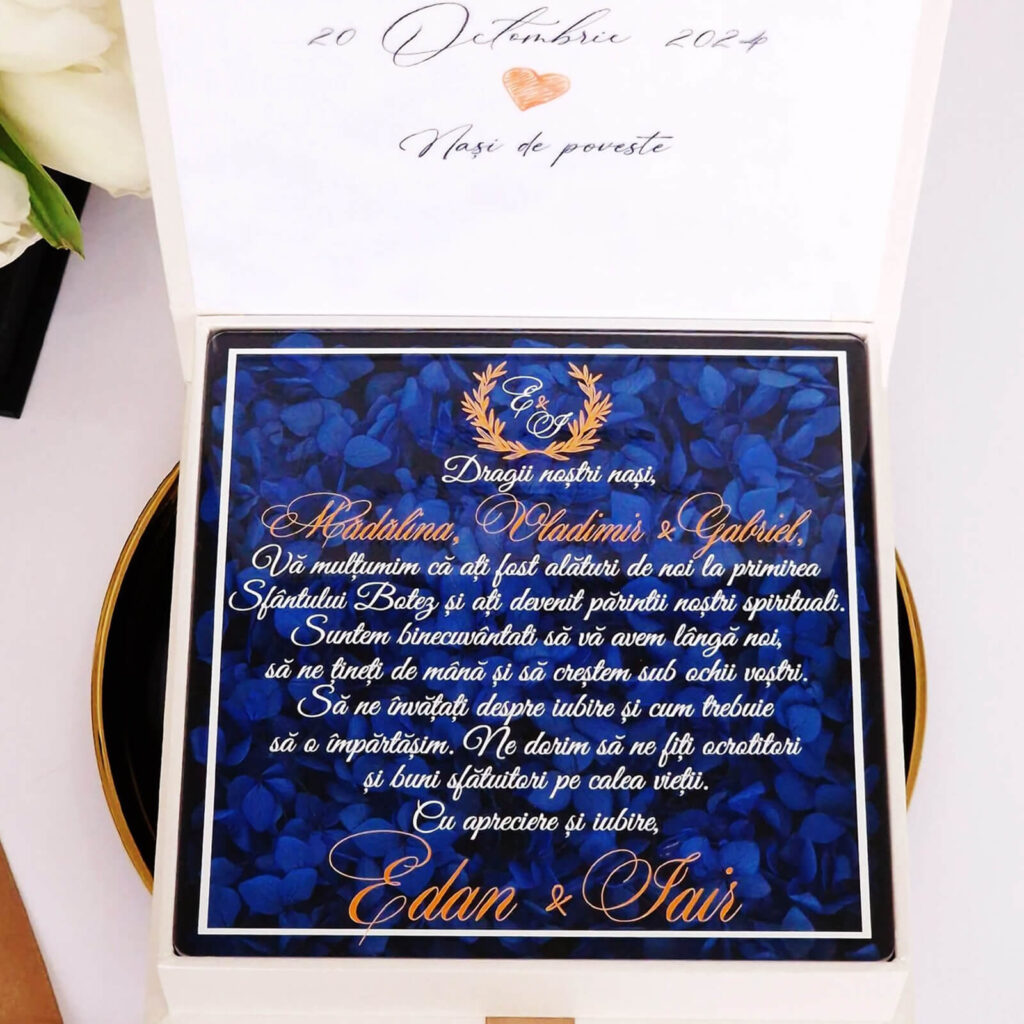 20 Octombrie 2024
Nași de poveste
E & I
Dragii noștri nași,
Mădălina, Vladimir & Gabriel,
Vă mulțumim că ați fost alături de noi la primirea
Sfântului Botez și ați devenit părintii noștri spirituali.
Suntem binecuvântati să vă avem lângă noi,
să ne țineți de mână și să creștem sub ochii voștri.
Să ne învățați despre iubire și cum trebuie
să o împărtășim. Ne dorim să ne fiți ocrotitori
și buni sfătuitori pe calea vieții.
Cu apreciere și iubire,
Edan & Iair